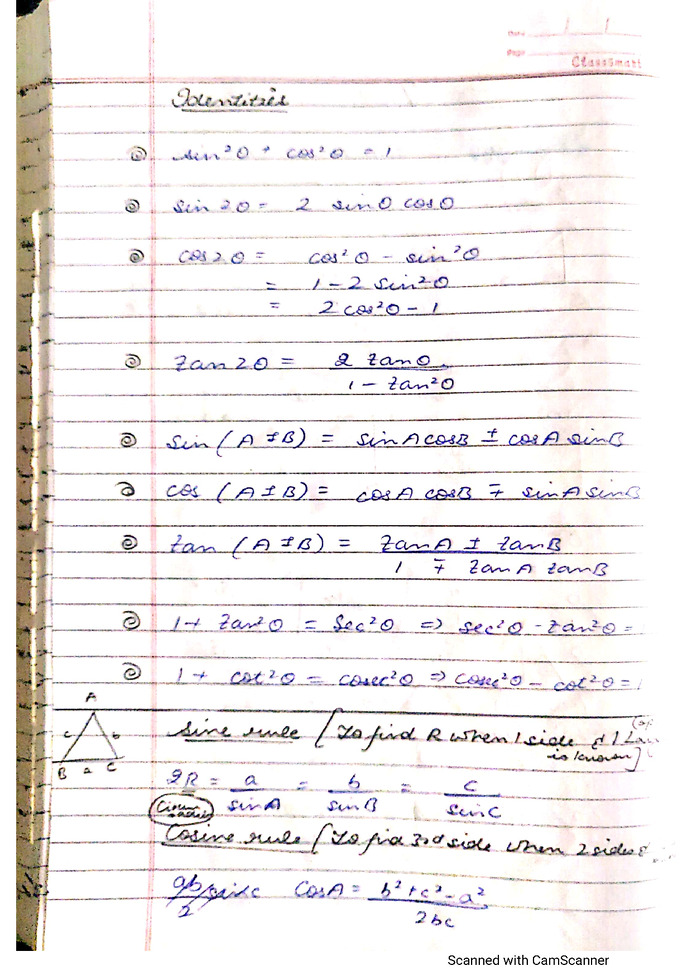 Date / /
Page
Classmate
Identities
sin²θ + cos²θ = 1
sin 2θ = 2 sinθ cosθ
cos2θ = cos²θ - sin²θ
= 1 - 2 sin²θ
= 2 cos²θ - 1
tan 2θ = 2 tanθ
1 - tan²θ
sin (A ± B) = sinA cosB ± cosA sinB
cos (A ± B) = cosA cosB ∓ sinA sinB
tan (A ± B) = tanA ± tanB
1 ∓ tanA tanB
1 + tan²θ = Sec²θ ⇒ sec²θ - tan²θ =
1 + cot²θ = cosec²θ ⇒ cosec²θ - cot²θ = 1
A
c b
B a C
Sine rule [To find R when 1 side & 1
is known]
2R = a = b = c
sinA sinB sinC
Circum
radius
Cosine rule [To find 3rd side when 2 sides &
CosA = b² + c² - a²
2bc
Scanned with CamScanner